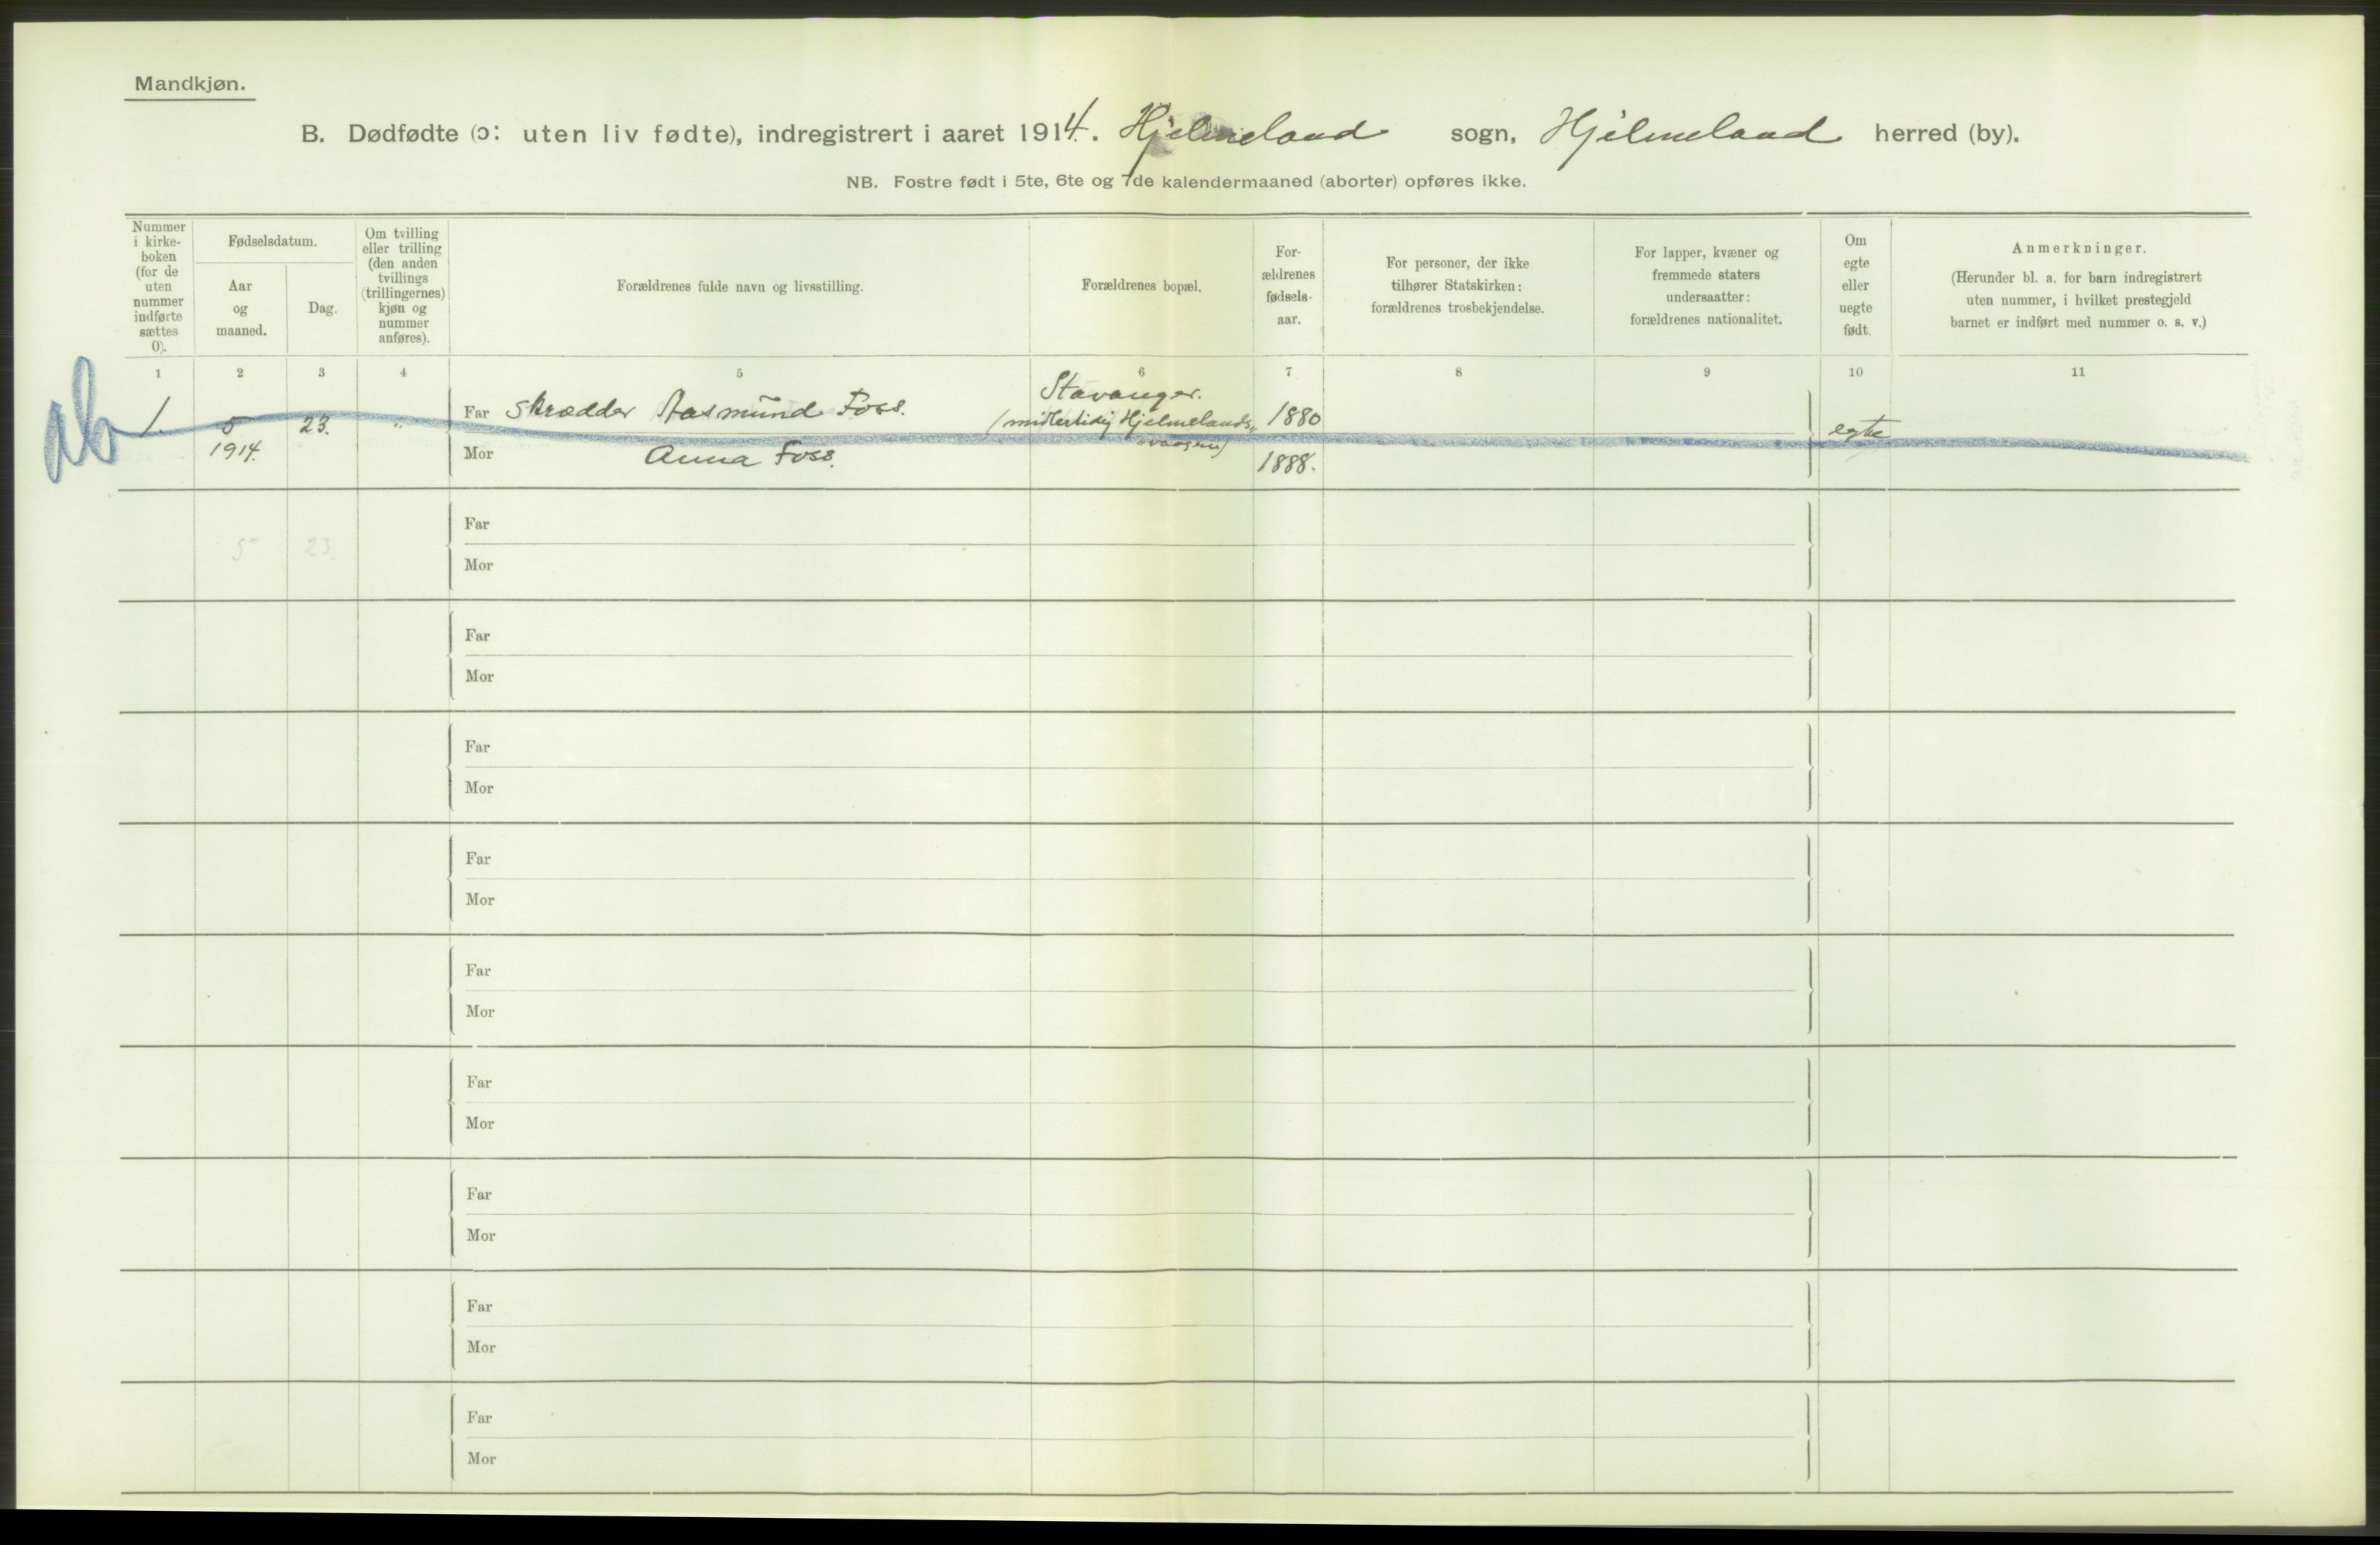 Mandkjøn.
B. Dødfødte (ɔ: uten liv fødte), indregistrert i aaret 1914. Hjelmeland sogn, Hjelmeland herred (by).
NB. Fostre født i 5te, 6te og 7de kalendermaaned (aborter) opføres ikke.
Nummer
i kirke-
boken
(for de
uten
nummer
indførte
sættes
0).
Fødselsdatum.
Aar
og
maaned.
Dag.
Om tvilling
eller trilling
(den anden
tvillings
(trillingernes)
kjøn og
nummer
anføres).
Forældrenes fulde navn og livsstilling.
Forældrenes bopæl.
For-
ældrenes
fødsels-
aar.
For personer, der ikke
tilhører Statskirken:
forældrenes trosbekjendelse.
For lapper, kvæner og
fremmede staters
undersaatter:
forældrenes nationalitet.
Om
egte
eller
uegte
født.
Anmerkninger.
(Herunder bl. a. for barn indregistrert
uten nummer, i hvilket prestegjeld
barnet er indført med nummer o. s. v.)
1 2 3 4 5 6 7 8 9 10 11
ab
1.
5
1914.
23.
"
Far Skrædder Aasmund Foss.
Mor Anna Foss.
Stavanger.
(midlertidig Hjelmelands„
„vaagen)
1880
1888.
egte
5 23.
Far
Mor
Far
Mor
Far
Mor
Far
Mor
Far
Mor
Far
Mor
Far
Mor
Far
Mor
Far
Mor